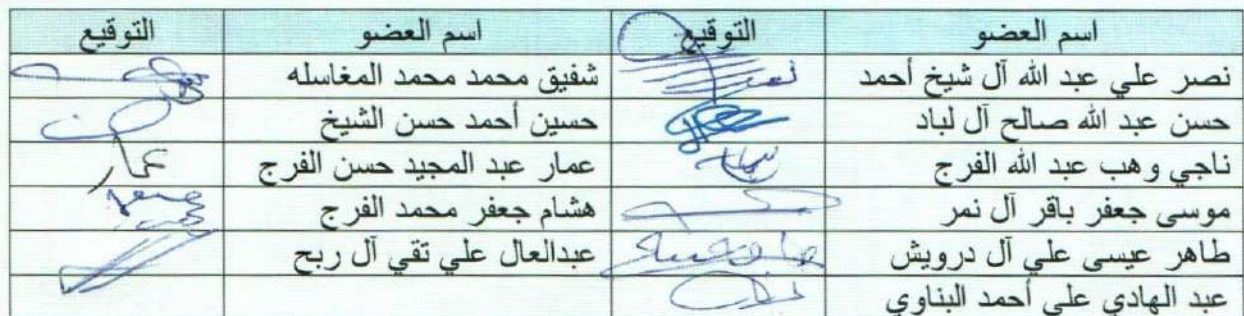 اسم العضو التوقيع اسم العضو التوقيع
نصر علي عبد الله آل شيخ أحمد شفيق محمد محمد المغاسله
حسن عبد الله صالح آل لباد حسين أحمد حسن الشيخ
ناجي وهب عبد الله الفرج عمار عبد المجيد حسن الفرج عمار
موسى جعفر باقر آل نمر هشام جعفر محمد الفرج
طاهر عيسى علي آل درويش عبدالعال علي تقي آل ربح
عبد الهادي علي أحمد البناوي